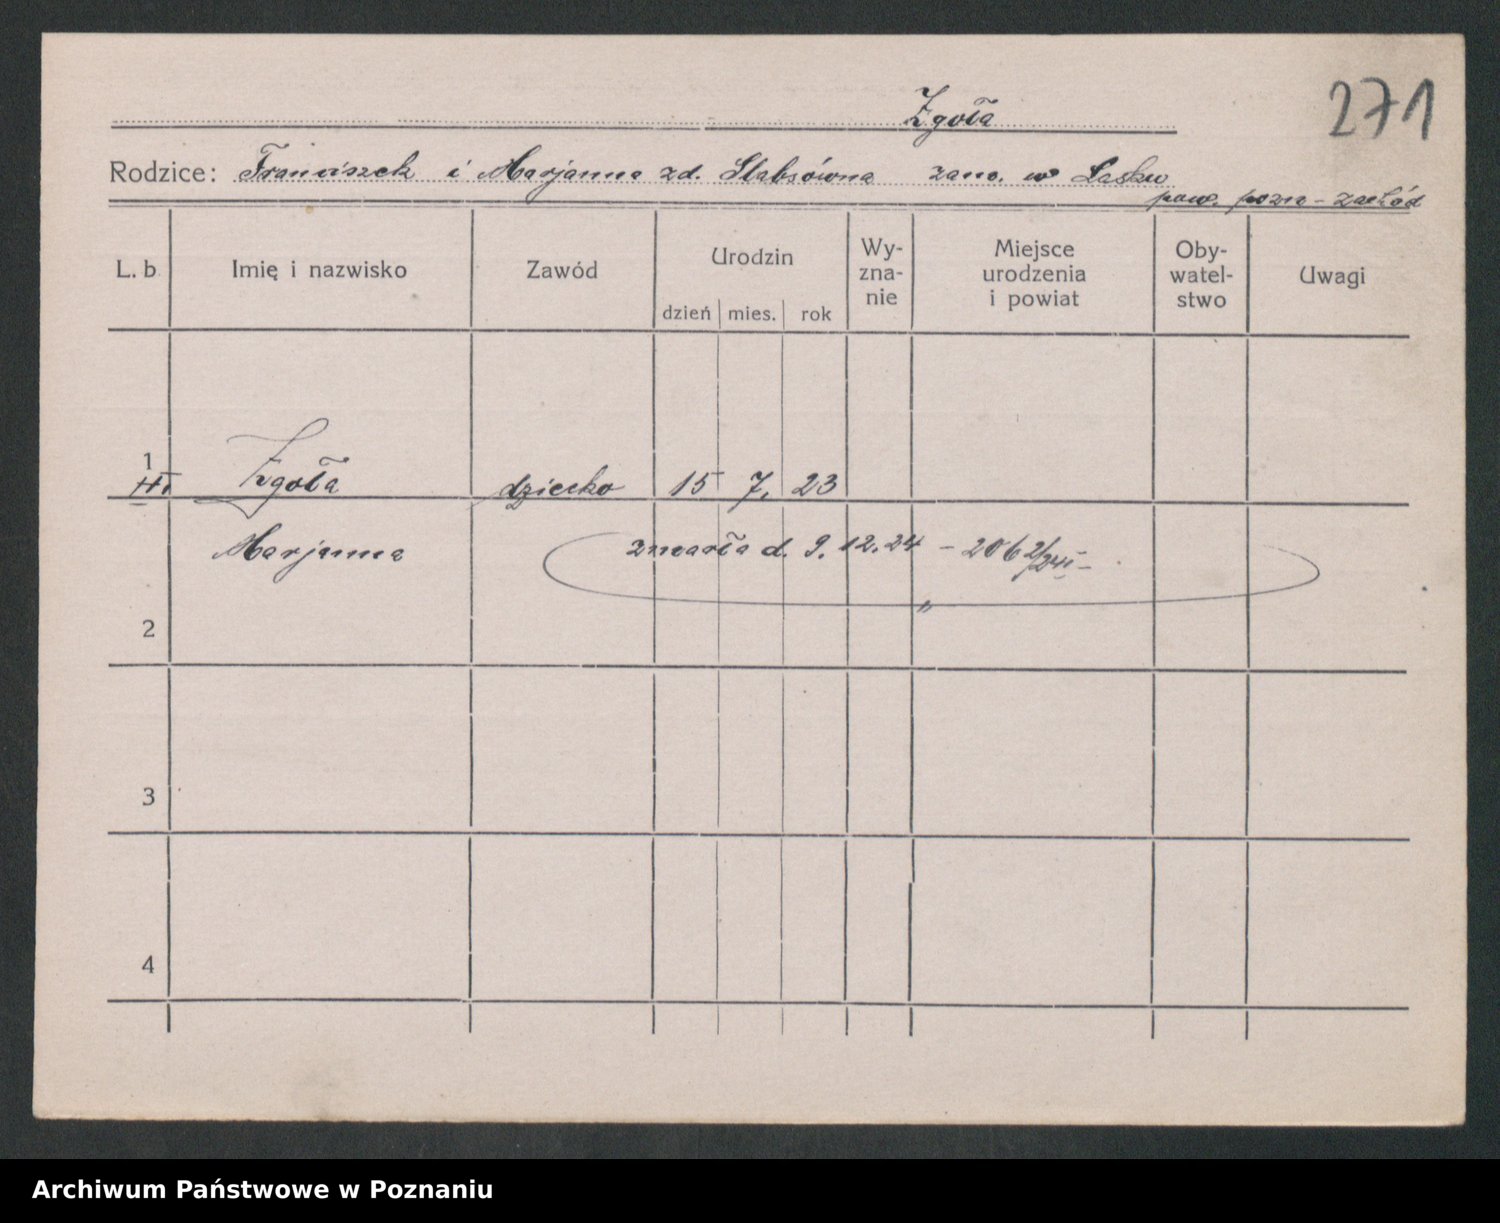 271
Zgoła
Rodzice: Franciszek i Marjanna zd. Slabsówna zam. w Lasku
pow. pozn-zachód
L. b. Imię i nazwisko Zawód Urodzin dzień mies. rok Wy-zna-nie Miejsce urodzenia i powiat Oby-watel-stwo Uwagi
1 Zgoła dziecko 15 7. 23
II.
Marjanna zmarła d. 9. 12. 24 - 2062/24
2
3
4
Archiwum Państwowe w Poznaniu